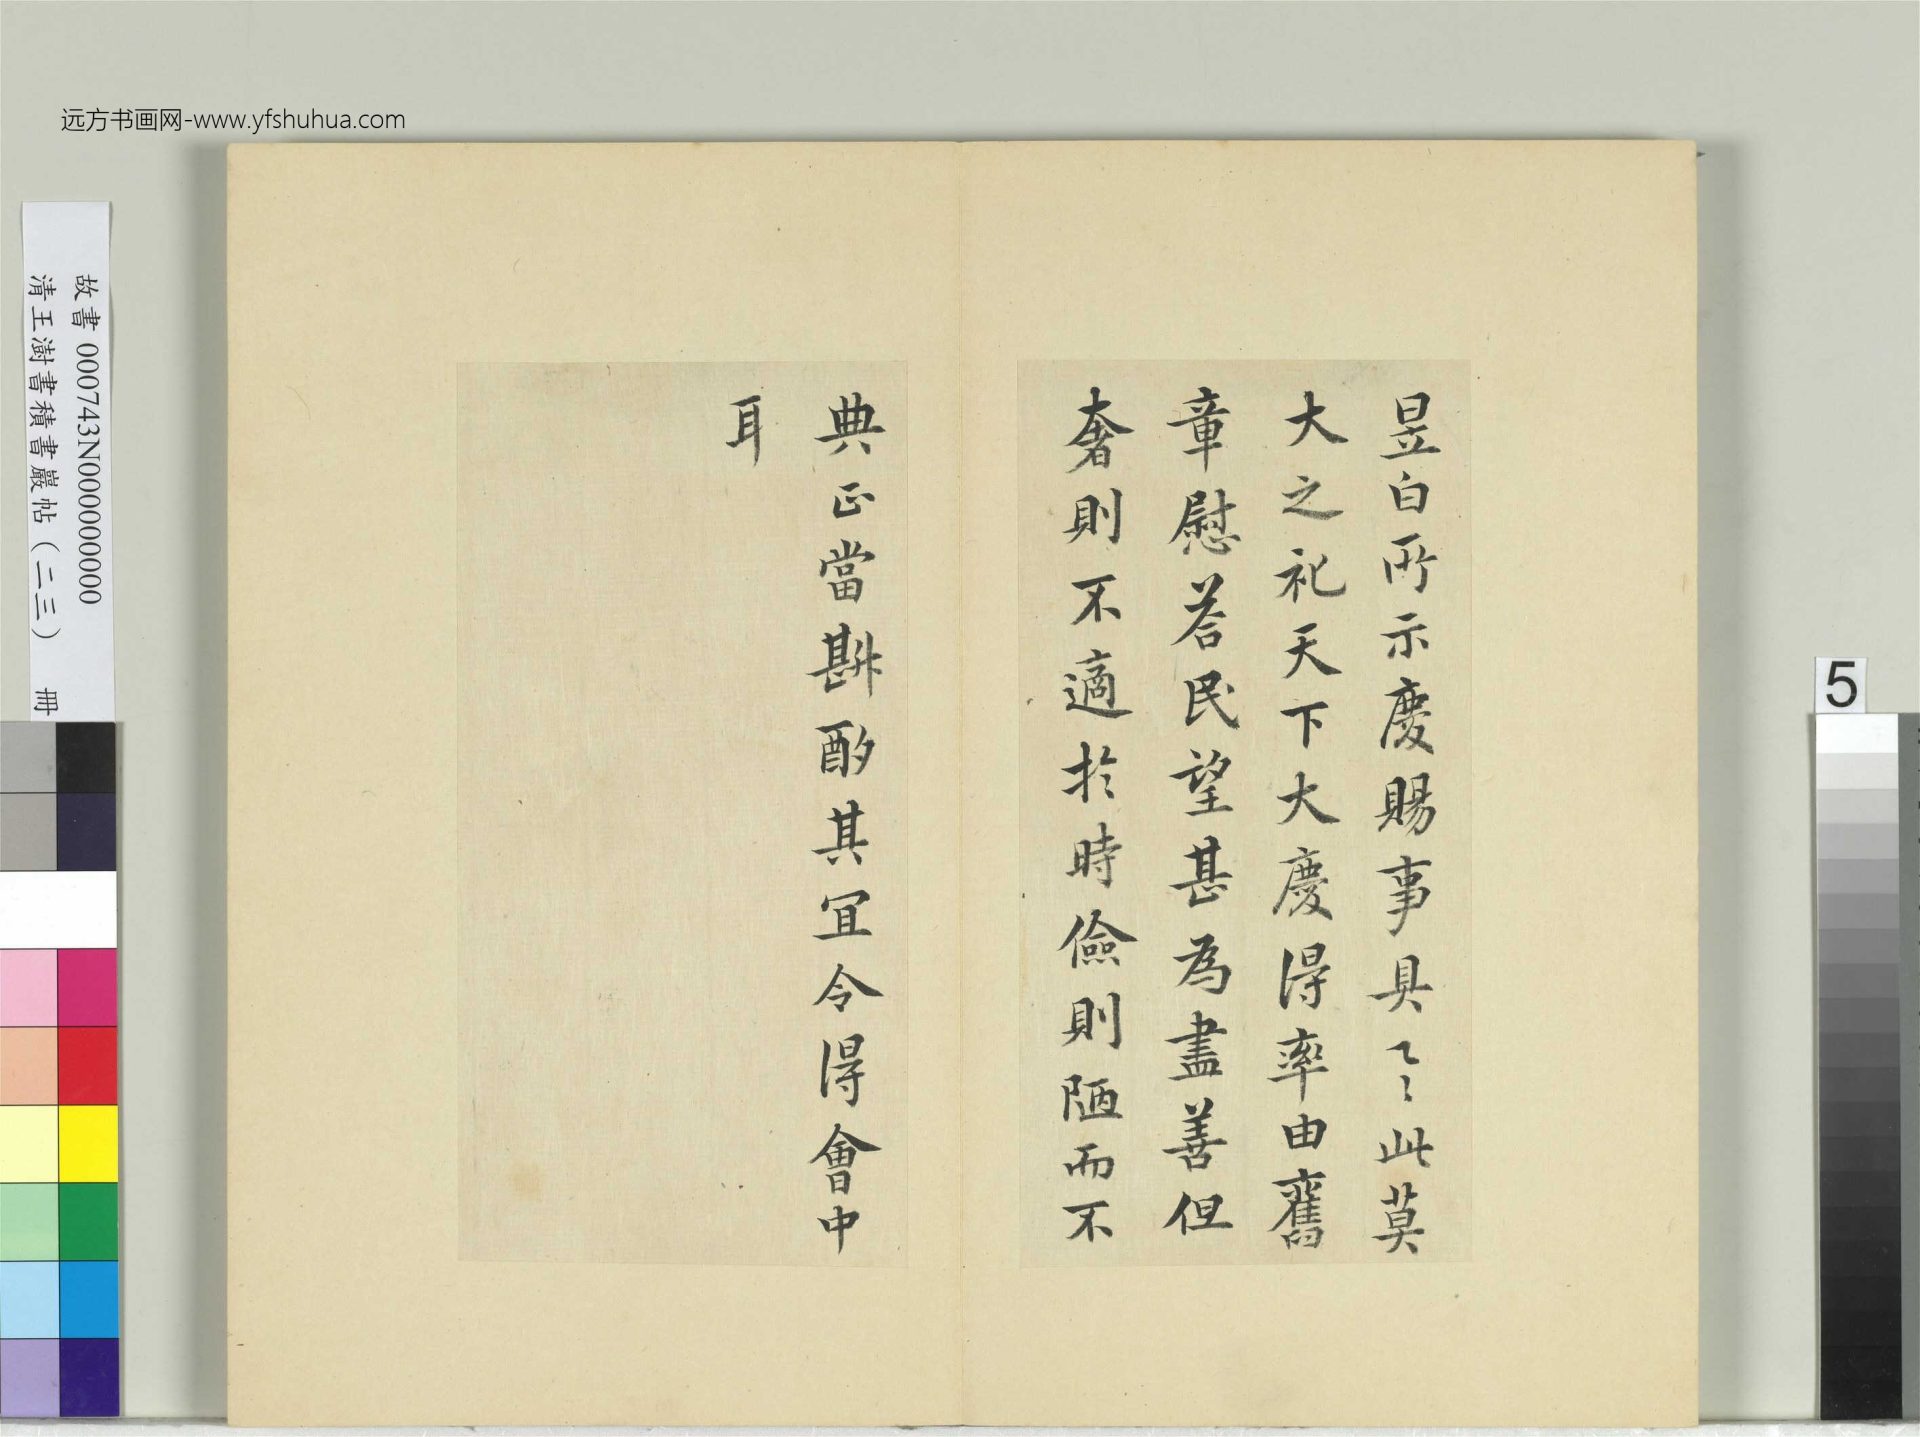 远方书画网-www.yfshuhua.com
故書 000743N000000000
清王澍書積書巖帖（二三） 冊
5
昱白所示慶賜事具之此莫
大之祀天下大慶得率由舊
章慰荅民望甚為盡善但
奢則不適於時儉則陋而不
典正當斟酌其冝令得會中
耳